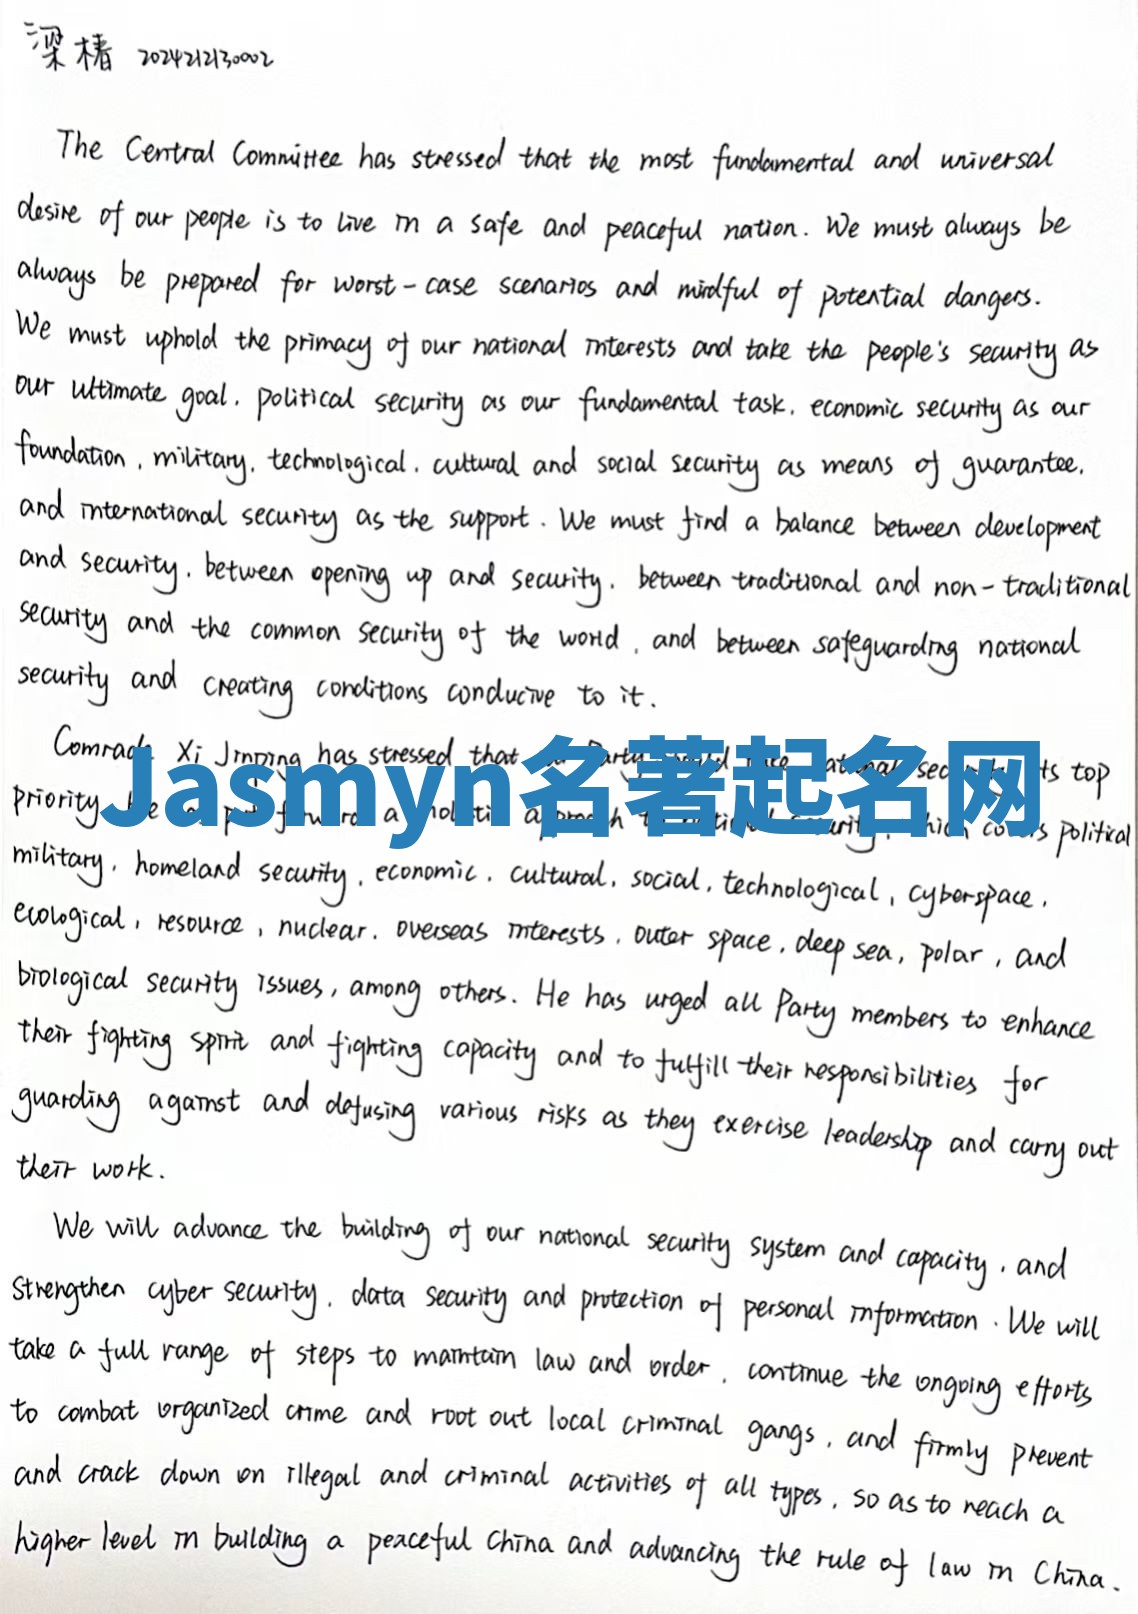 梁椿 2024212130002
The Central Committee has stressed that the most fundamental and universal
desire of our people is to live in a safe and peaceful nation. We must always be
always be prepared for worst-case scenarios and mindful of potential dangers.
We must uphold the primacy of our national interests and take the people's security as
our ultimate goal, political security as our fundamental task, economic security as our
foundation, military, technological, cultural and social security as means of guarantee,
and international security as the support. We must find a balance between development
and security, between opening up and security, between traditional and non-traditional
security and the common security of the world, and between safeguarding national
security and creating conditions conducive to it.
Comrade Xi Jinping has stressed that Party national security its top
Jasmyn名著起名网
priority. forward a holistic approach to national security, which covers political
military, homeland security, economic, cultural, social, technological, cyberspace,
ecological, resource, nuclear, overseas interests, outer space, deep sea, polar, and
biological security issues, among others. He has urged all Party members to enhance
their fighting spirit and fighting capacity and to fulfill their responsibilities for
guarding against and defusing various risks as they exercise leadership and carry out
their work.
We will advance the building of our national security system and capacity, and
strengthen cyber security, data security and protection of personal information. We will
take a full range of steps to maintain law and order, continue the ongoing efforts
to combat organized crime and root out local criminal gangs, and firmly prevent
and crack down on illegal and criminal activities of all types, so as to reach a
higher level in building a peaceful China and advancing the rule of law in China.